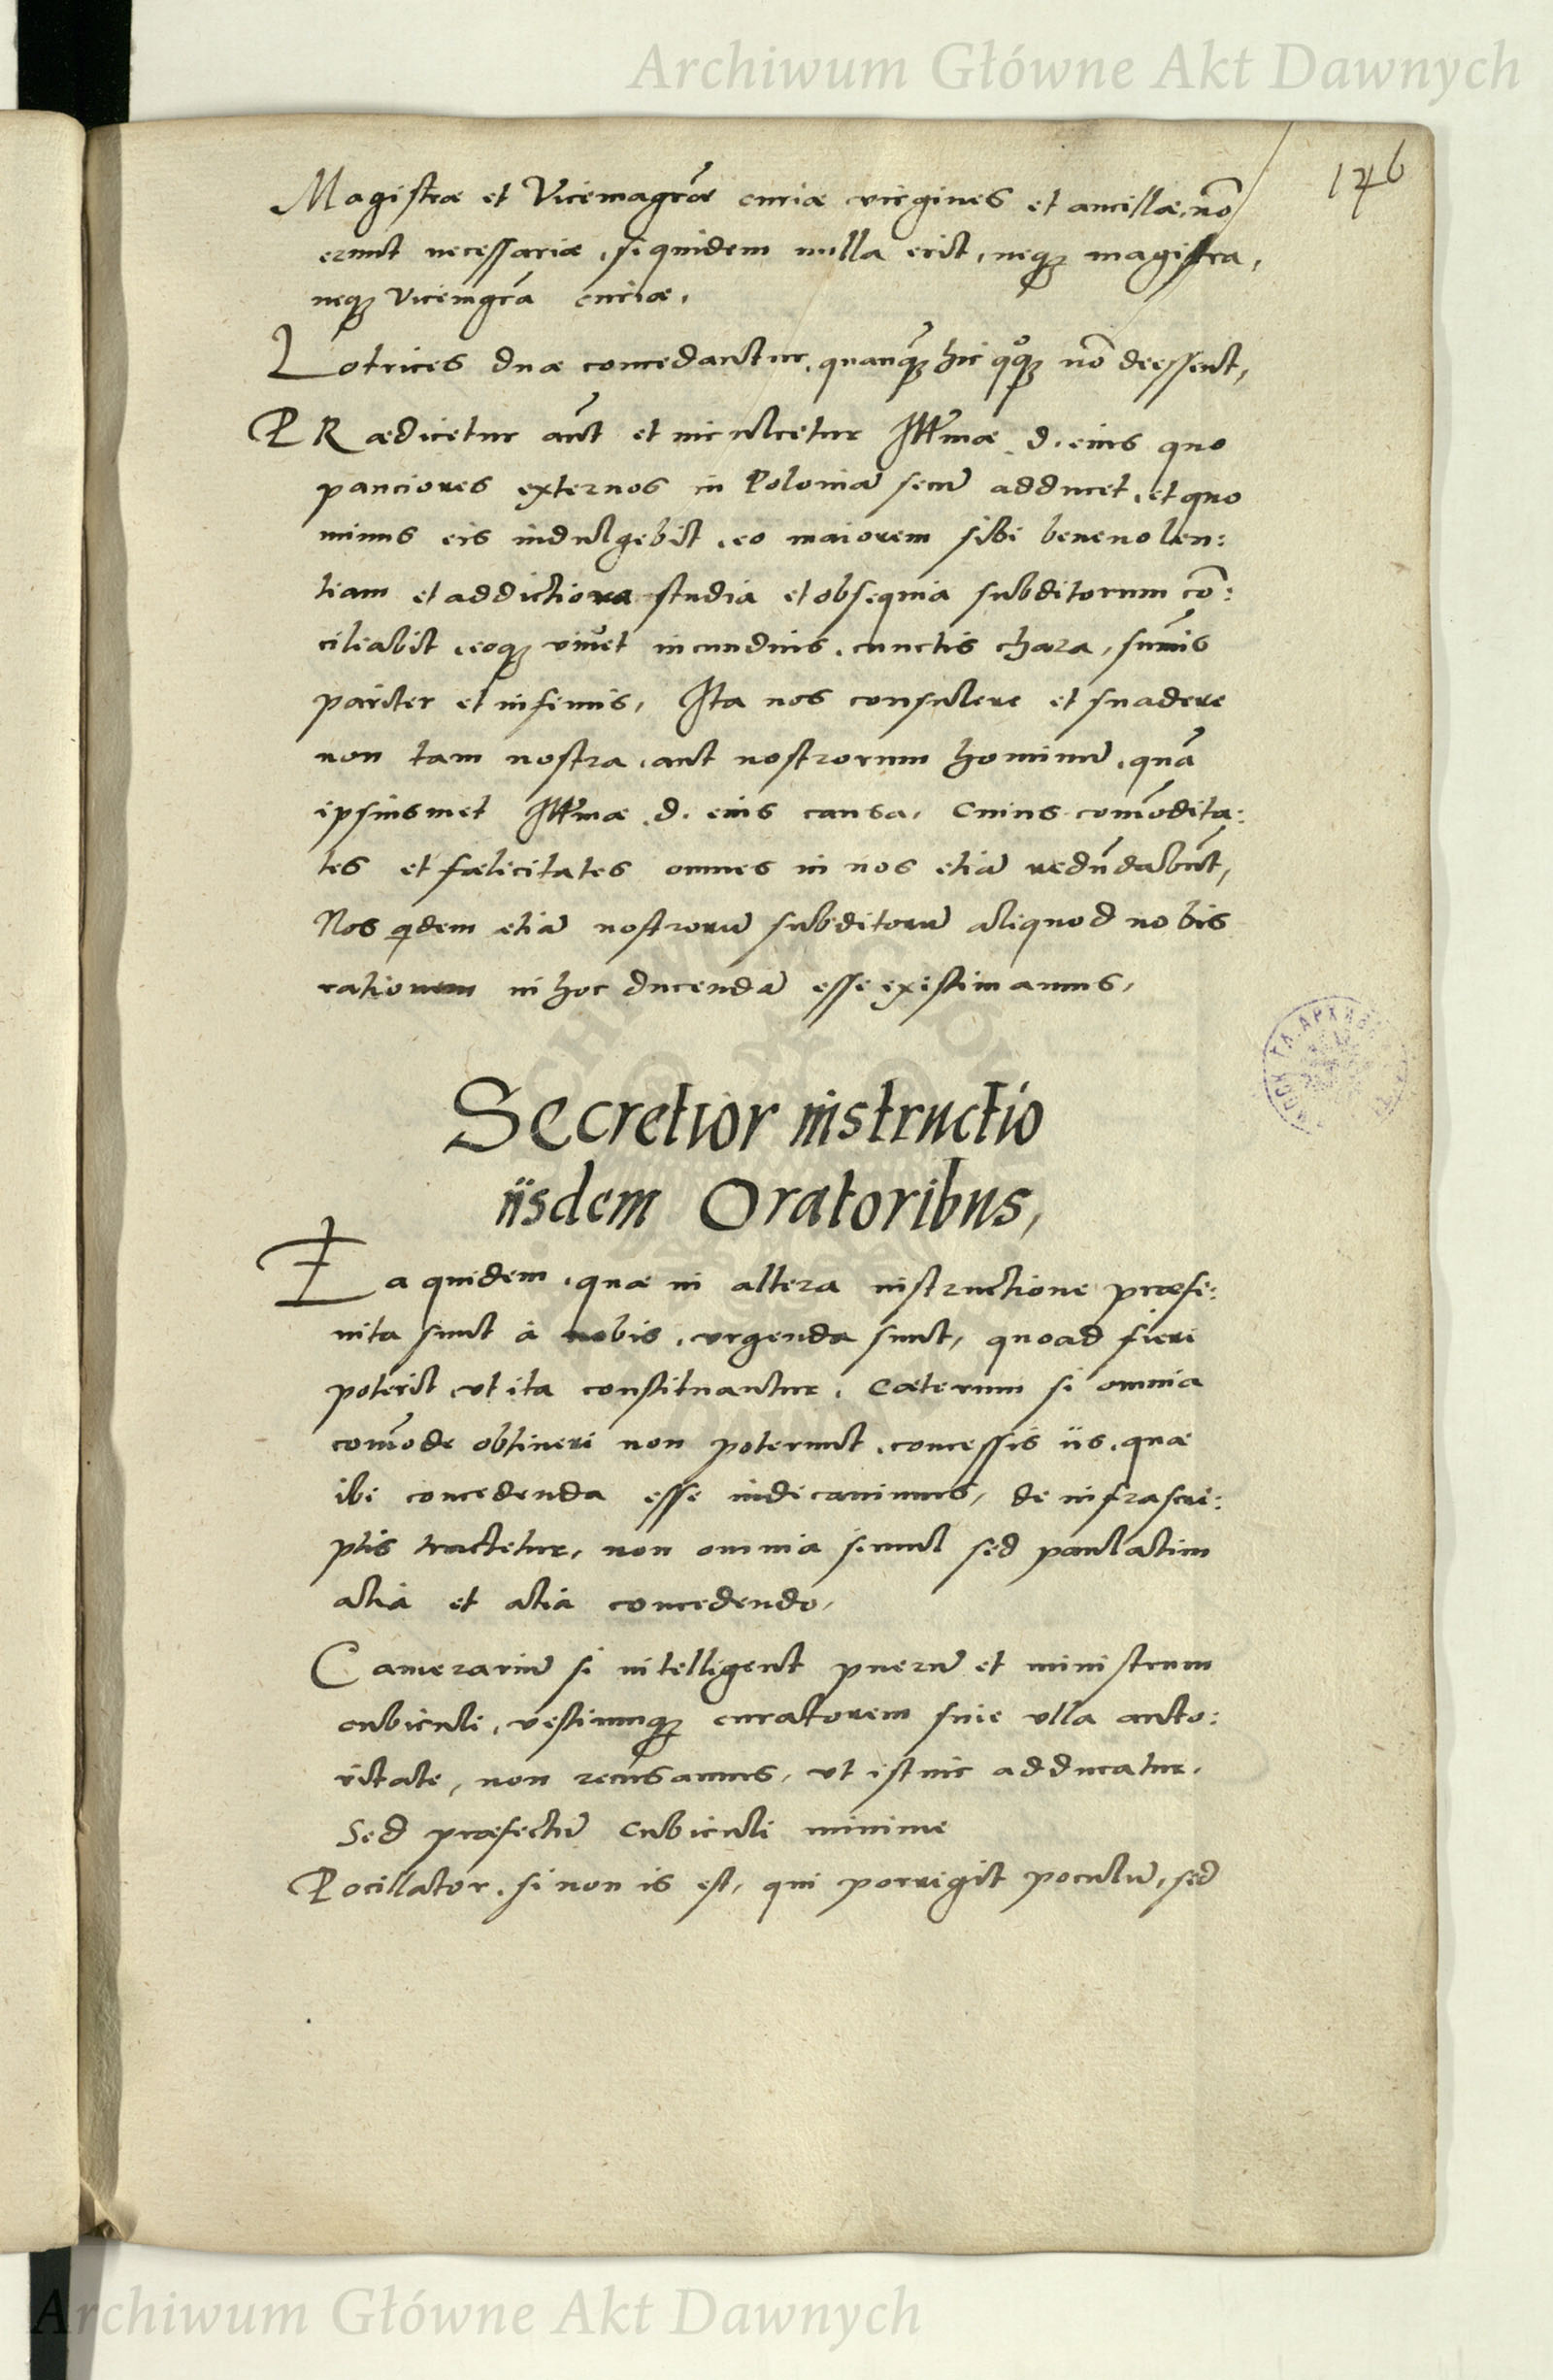 Archiwum Główne Akt Dawnych
146
Magistræ et Vicemagræ curiæ virgines et ancillæ, nõ
erunt necessariæ, siquidem nulla erit, neqꝫ magistra,
neqꝫ Vicemgrã curiæ.
Lotrices duæ concedantur, quanqꝫ hic quoqꝫ nõ deessent,
PRædicetur aũt et inculcetur Illmæ d. eius quo
pauciores externos in Poloniã secũ adducet, et quo
minus eis indulgebit, eo maiorem sibi beneuolen:
tiam et addictiora studia et obsequia subditorum cõ:
ciliabit, eoqꝫ viuet iucundius, cunctis chara, sum̃is
pariter et infimis, Ita nos consulere et suadere
non tam nostra, aut nostrorum hominũ, quã
ipsiusmet Illmæ d. eius causa, Cuius com̃odita:
tes et fælicitates omnes in nos etiã redũdabũt,
Nos qdem etiã nostrorũ subditorũ aliquod nobis
rationem in hoc ducendã esse existimamus,
Secretior instructio
iisdem Oratoribus,
Ea quidem, quæ in altera instructione præfi:
nita sunt à nobis, vrgenda sunt, quoad fieri
poterit, vt ita constituantur, Cæterum si omnia
com̃ode obtineri non poterunt, concessis iis, quæ
ibi concedenda esse iudicauimus, de infrascri:
ptis tractetur, non omnia simul sed paulatim
alia et alia concedendo,
Camerariũ si intelligent puerũ et ministrum
cubiculi, vestiumqꝫ curatorem sine vlla auto:
ritate, non recusamus, vt istuic adducatur.
Sed præfectũ cubiculi minime
Pocillator, si non is est, qui porrigit poculũ, sed
Archiwum Główne Akt Dawnych